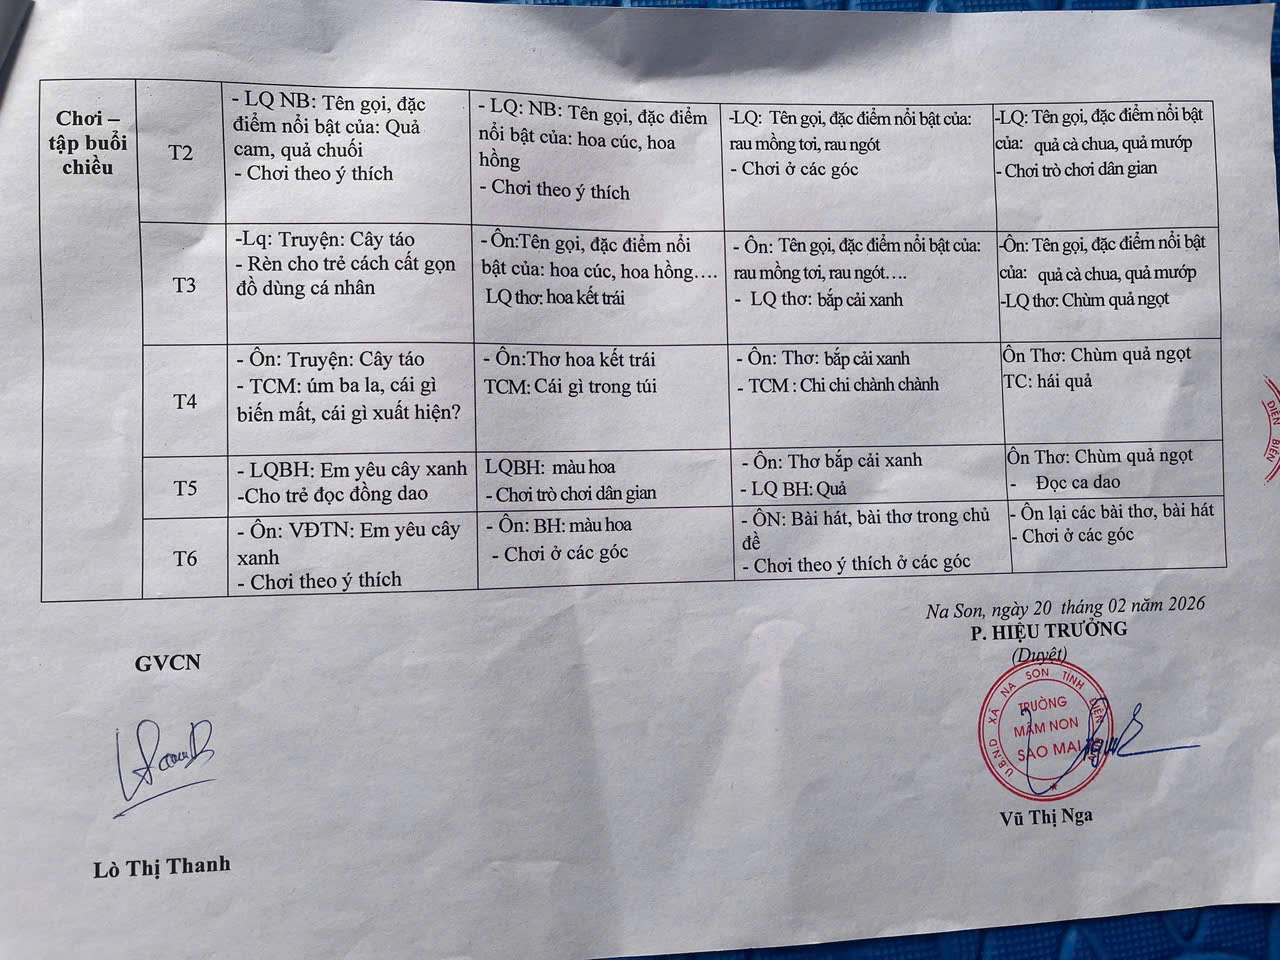 Chơi –
tập buổi
chiều
T2
- LQ NB: Tên gọi, đặc
điểm nổi bật của: Quả
cam, quả chuối
- Chơi theo ý thích
- LQ: NB: Tên gọi, đặc điểm
nổi bật của: hoa cúc, hoa
hồng
- Chơi theo ý thích
-LQ: Tên gọi, đặc điểm nổi bật của:
rau mồng tơi, rau ngót
- Chơi ở các góc
-LQ: Tên gọi, đặc điểm nổi bật
của: quả cà chua, quả mướp
- Chơi trò chơi dân gian
T3
-Lq: Truyện: Cây táo
- Rèn cho trẻ cách cất gọn
đồ dùng cá nhân
- Ôn:Tên gọi, đặc điểm nổi
bật của: hoa cúc, hoa hồng….
LQ thơ: hoa kết trái
- Ôn: Tên gọi, đặc điểm nổi bật của:
rau mồng tơi, rau ngót….
- LQ thơ: bắp cải xanh
-Ôn: Tên gọi, đặc điểm nổi bật
của: quả cà chua, quả mướp
-LQ thơ: Chùm quả ngọt
T4
- Ôn: Truyện: Cây táo
- TCM: úm ba la, cái gì
biến mất, cái gì xuất hiện?
- Ôn:Thơ hoa kết trái
TCM: Cái gì trong túi
- Ôn: Thơ: bắp cải xanh
- TCM : Chi chi chành chành
Ôn Thơ: Chùm quả ngọt
TC: hái quả
T5
- LQBH: Em yêu cây xanh
-Cho trẻ đọc đồng dao
LQBH: màu hoa
- Chơi trò chơi dân gian
- Ôn: Thơ bắp cải xanh
- LQ BH: Quả
Ôn Thơ: Chùm quả ngọt
- Đọc ca dao
T6
- Ôn: VĐTN: Em yêu cây
xanh
- Chơi theo ý thích
- Ôn: BH: màu hoa
- Chơi ở các góc
- ÔN: Bài hát, bài thơ trong chủ
đề
- Chơi theo ý thích ở các góc
- Ôn lại các bài thơ, bài hát
- Chơi ở các góc
ĐIỆN BIÊN
Na Son, ngày 20 tháng 02 năm 2026
P. HIỆU TRƯỞNG
(Duyệt)
GVCN
U.B.N.D XÃ NA SON TỈNH ĐIỆN
TRƯỜNG
MẦM NON
SAO MAI
Vũ Thị Nga
Lò Thị Thanh